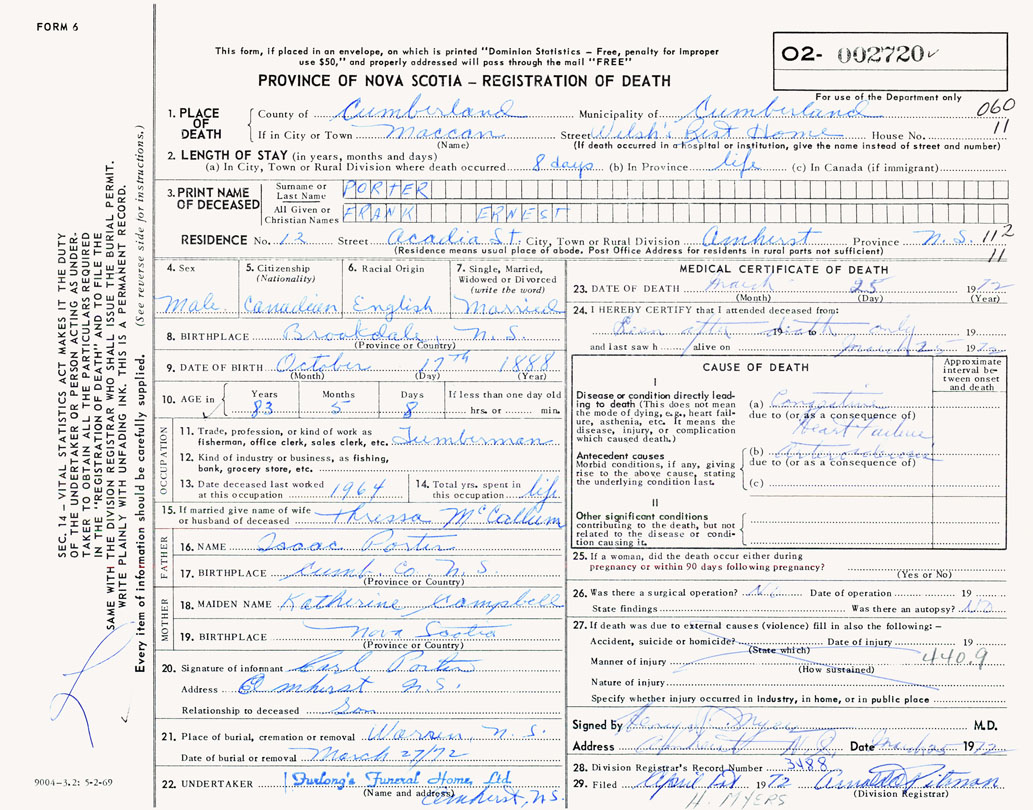 FORM 6
This form, if placed in an envelope, on which is printed "Dominion Statistics – Free, penalty for improper
use $50," and properly addressed will pass through the mail "FREE"
PROVINCE OF NOVA SCOTIA – REGISTRATION OF DEATH
O2- 002720
For use of the Department only
060
11
1. PLACE OF DEATH
County of Cumberland Municipality of Cumberland
If in City or Town Maccan Street Welsh's Rest Home House No.
(Name) (If death occurred in a hospital or institution, give the name instead of street and number)
2. LENGTH OF STAY (in years, months and days)
(a) In City, Town or Rural Division where death occurred 8 days (b) In Province life (c) In Canada (if immigrant)
3. PRINT NAME OF DECEASED
Surname or Last Name PORTER
All Given or Christian Names FRANK ERNEST
RESIDENCE No. 12 Street Acadia St. City, Town or Rural Division Amherst Province N.S. 112
(Residence means usual place of abode. Post Office Address for residents in rural parts not sufficient) 11
4. Sex
Male
5. Citizenship (Nationality)
Canadian
6. Racial Origin
English
7. Single, Married, Widowed or Divorced (write the word)
Married
8. BIRTHPLACE Brookdale, N.S.
(Province or Country)
9. DATE OF BIRTH October 17th 1888
(Month) (Day) (Year)
10. AGE in Years Months Days If less than one day old
83 5 8 hrs. or min.
OCCUPATION
11. Trade, profession, or kind of work as
fisherman, office clerk, sales clerk, etc. Lumberman
12. Kind of industry or business, as fishing,
bank, grocery store, etc.
13. Date deceased last worked
at this occupation 1964
14. Total yrs. spent in
this occupation life
15. If married give name of wife
or husband of deceased Thressa McCallum
FATHER
16. NAME Isaac Porter
17. BIRTHPLACE Cumb. Co. N.S.
(Province or Country)
MOTHER
18. MAIDEN NAME Katherine Campbell
19. BIRTHPLACE Nova Scotia
(Province or Country)
20. Signature of informant Carl Porter
Address Amherst N.S.
Relationship to deceased Son
21. Place of burial, cremation or removal Warren, N.S.
Date of burial or removal March 27/72
22. UNDERTAKER Furlong's Funeral Home, Ltd
(Name and address) Amherst, N.S.
MEDICAL CERTIFICATE OF DEATH
23. DATE OF DEATH March 25 1972
(Month) (Day) (Year)
24. I HEREBY CERTIFY that I attended deceased from:
after death only 19 19
and last saw h alive on March 25 1972
CAUSE OF DEATH
Approximate interval between onset and death
I
Disease or condition directly leading
to death (This does not mean
the mode of dying, e.g., heart failure,
asthenia, etc. It means the
disease, injury, or complication
which caused death.)
(a) Congestive
due to (or as a consequence of)
Heart Failure
Antecedent causes
Morbid conditions, if any, giving
rise to the above cause, stating
the underlying condition last.
(b)
due to (or as a consequence of)
(c)
II
Other significant conditions
contributing to the death, but not
related to the disease or condition
causing it.
25. If a woman, did the death occur either during
pregnancy or within 90 days following pregnancy?
(Yes or No)
26. Was there a surgical operation? No Date of operation 19
State findings Was there an autopsy? No
27. If death was due to external causes (violence) fill in also the following: –
Accident, suicide or homicide? Date of injury 19
(State which)
440.9
Manner of injury
(How sustained)
Nature of injury
Specify whether injury occurred in industry, in home, or in public place
Signed by Myers M.D.
Address Amherst N.S. Date March 25 1972
28. Division Registrar's Record Number 3488
29. Filed April 1st 1972 Pitman
(Division Registrar)
H. MYERS
SEC. 14 – VITAL STATISTICS ACT MAKES IT THE DUTY
OF THE UNDERTAKER OR PERSON ACTING AS UNDERTAKER
TO OBTAIN ALL THE PARTICULARS REQUIRED
IN THE "REGISTRATION OF DEATH" AND TO FILE THE
SAME WITH THE DIVISION REGISTRAR WHO SHALL ISSUE THE BURIAL PERMIT.
WRITE PLAINLY WITH UNFADING INK. THIS IS A PERMANENT RECORD.
Every item of information should be carefully supplied. (See reverse side for instructions.)
9004-3.2: 5-2-69